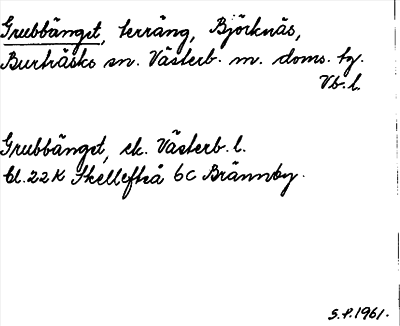 Grubbänget, terräng, Björknäs,
Burträsks sn. Västerb. m. doms. tg.
Vb. l.
Grubbänget, ek. Västerb. l.
bl. 22K Skellefteå 6C Brännby.
S.P. 1961.